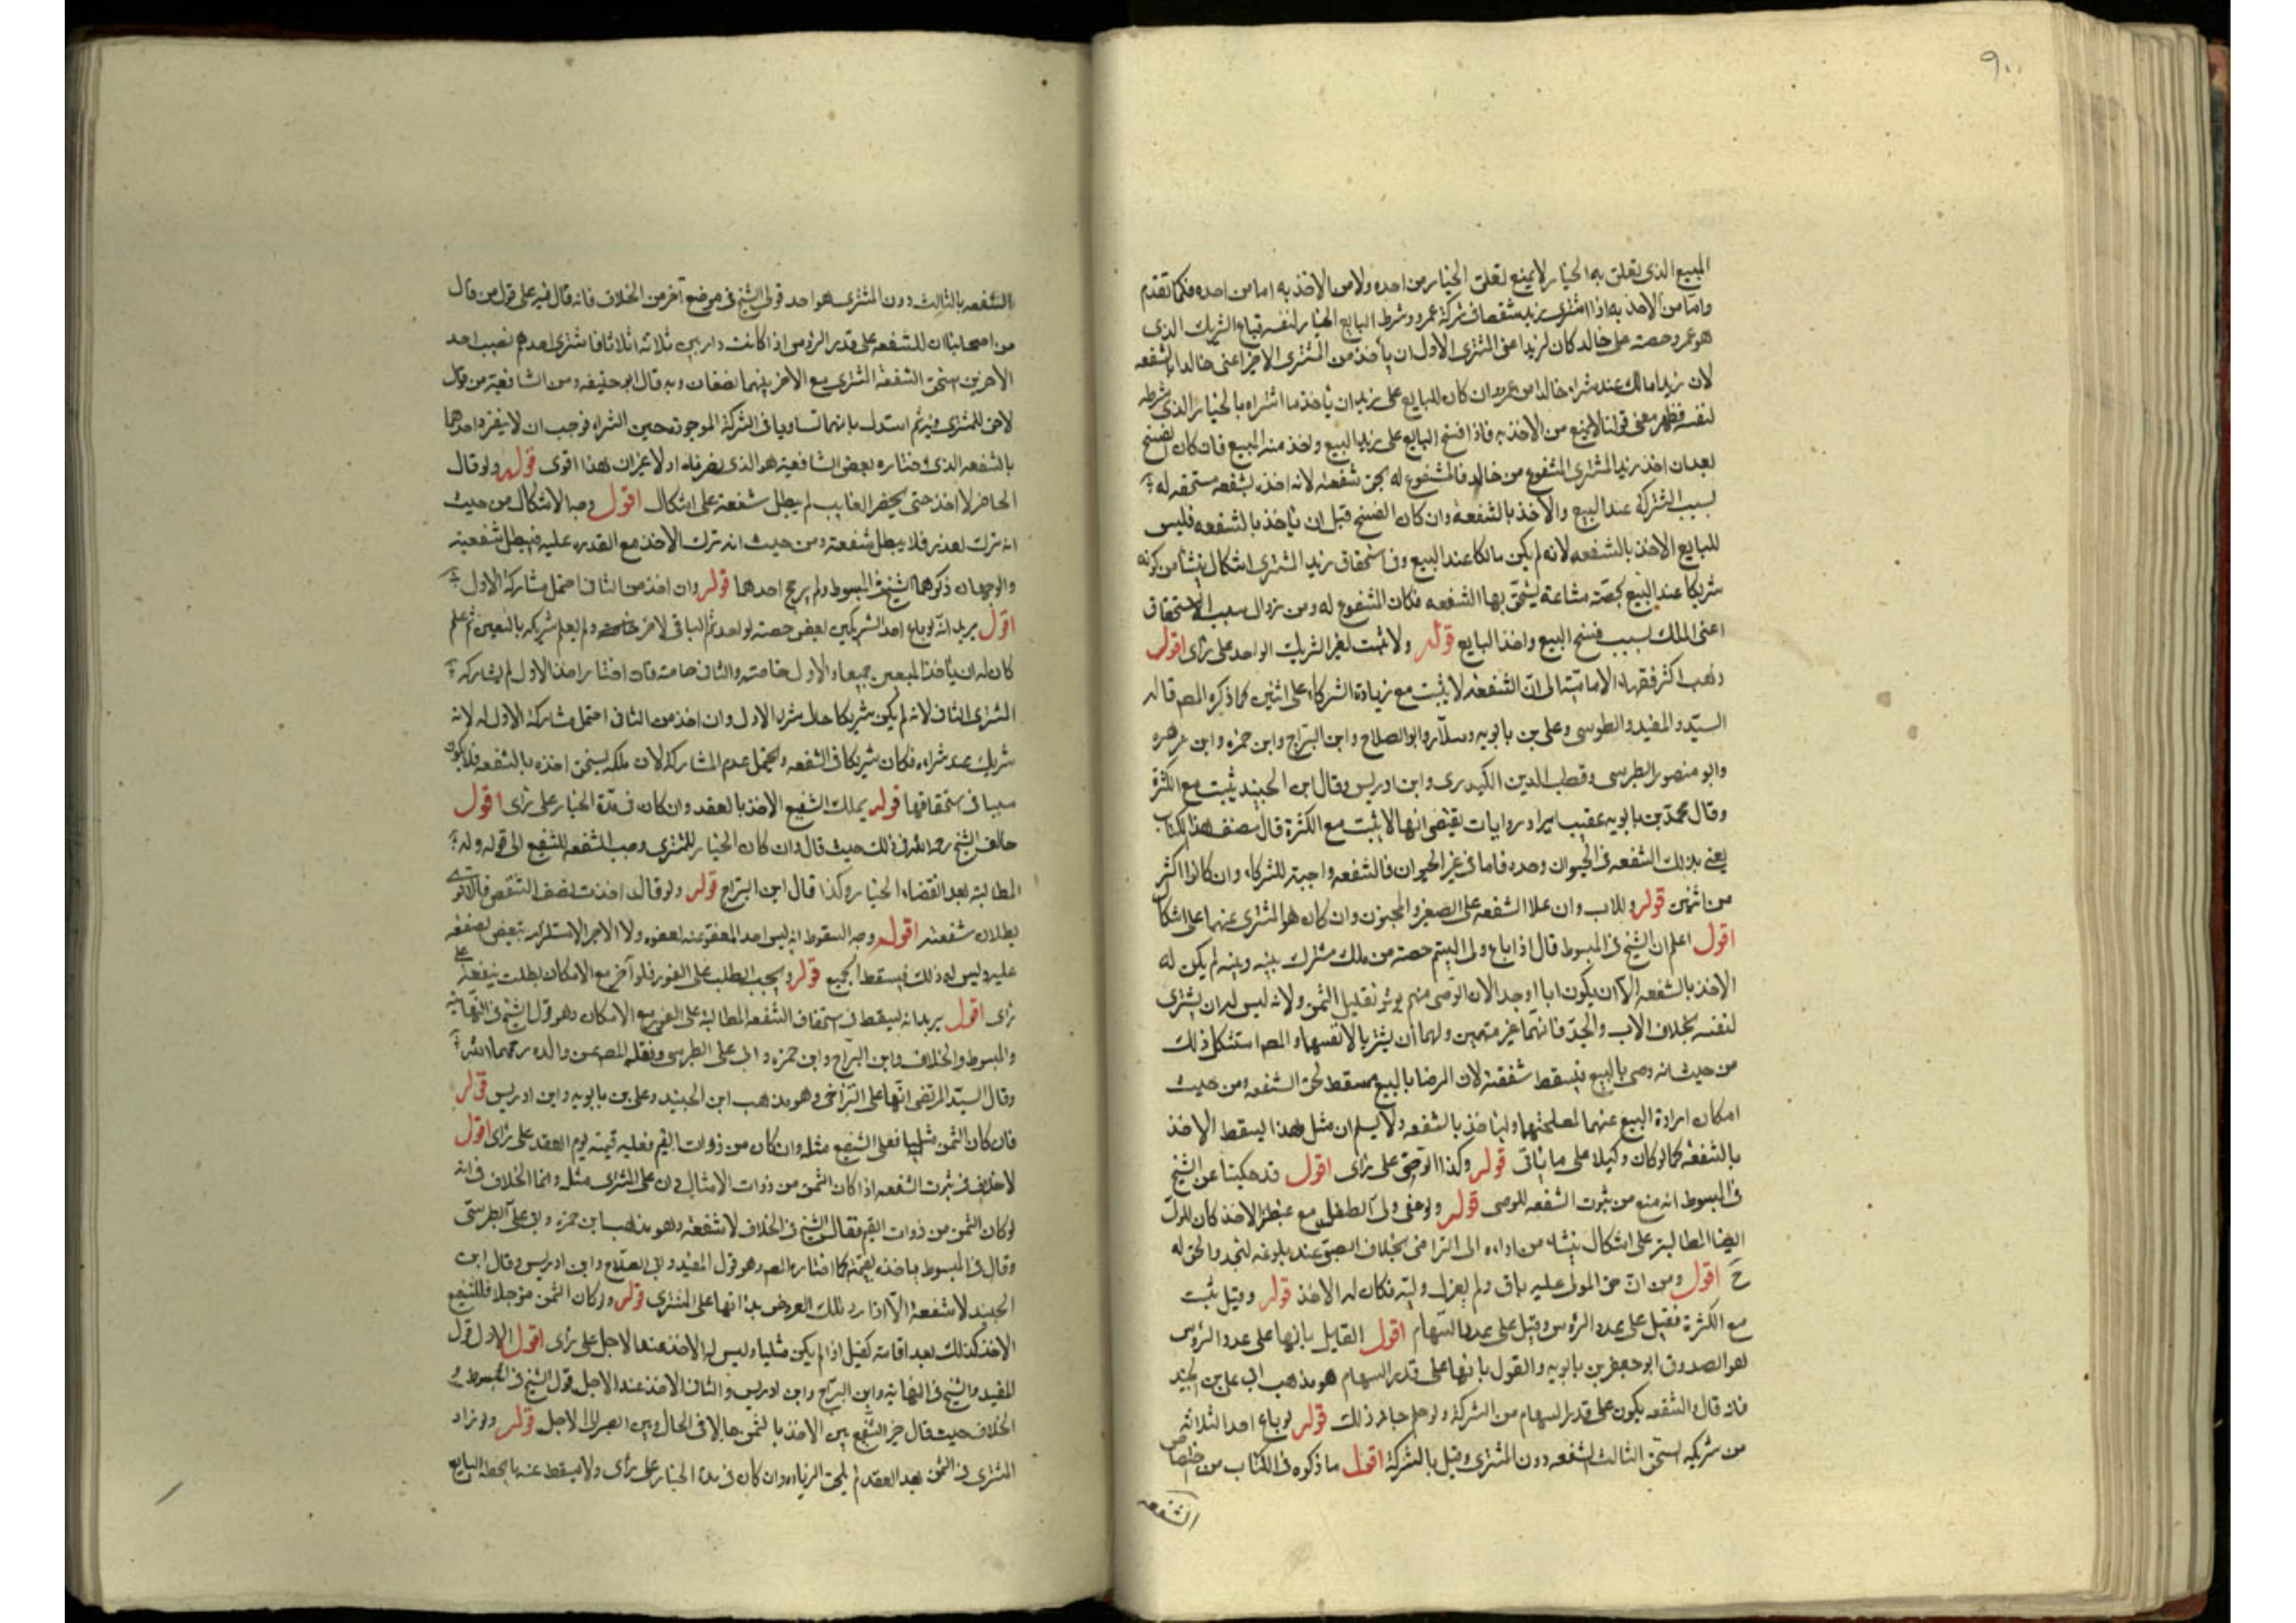 ٩٠
المبيع الذى تعلق به الخيار لا يمنع تعلق الخيار من احده ولا من الاخذ به اما من احده فكما تقدم
واما من الاخذ به اذا اشترى زيد شقصا فى شركة عمرو وشرط البايع الخيار لنفسه فباع الشريك الذى
هو عمرو حصته على خالد كان لزيد اعنى المشترى الاول ان ياخذ من المشترى الاخر اعنى خالدا بالشفعه
لان زيدا مالك عند شراء خالد من عمرو وان كان للبايع على زيد ان ياخذ ما اشتراه بالخيار الذى شرطه
لنفسه فظهر معنى قولنا لا يمنع من الاخذ به فاذا فسخ البايع على زيد البيع واخذ منه المبيع فان كان الفسخ
بعد ان اخذ زيد المشترى المشفوع من خالد فالمشفوع له بحق شفعته لانه اخذه بشفعه مستحقه له
بسبب الشركه عند البيع والاخذ بالشفعه وان كان الفسخ قبل ان ياخذ بالشفعه فليس
للبايع الاخذ بالشفعه لانه لم يكن مالكا عند البيع وفى استحقاق زيد المشترى اشكال ينشأ من كونه
شريكا عند البيع بحصته مشاعة يستحق بها الشفعه فكان المشفوع له ومن زوال سبب الاستحقاق
اعنى الملك بسبب فسخ البيع واخذ البايع قوله ولا تثبت لغير الشريك الواحد على راى اقول
ذهب اكثر فقهاء الامامية الى ان الشفعه لا يثبت مع زيادة الشركاء على اثنين كما ذكره المصـ قاله
السيد والمفيد والطوسى وعلى بن بابويه وسلار وابو الصلاح وابن البراج وابن حمزه وابن زهره
وابو منصور الطبرسى وقطب الدين الكيدرى وابن ادريس وقال ابن الجنيد يثبت مع الكثرة
وقال محمد بن بابويه عقيب ايراد روايات يقتضى انها لا يثبت مع الكثرة قال مصنف هذا الكتاب
يعنى بذلك الشفعه فى الحيوان وحده فاما فى غير الحيوان فالشفعه واجبة للشركاء وان كانوا اكثر
من اثنين قوله وللاب وان علا الشفعه على الصغير والمجنون وان كان هو المشترى عنهما على اشكال
اقول اعلم ان الشيخ فى المبسوط قال اذا باع ولى اليتيم حصته من ملك مشترك بينه وبينه لم يكن له
الاخذ بالشفعه الا ان يكون ابا او جدا لان الوصى متهم يوثر تقليل الثمن ولانه ليس له ان يشترى
لنفسه بخلاف الاب والجد فانهما غير متهمين ولهما ان يشتريا لانفسهما والمصـ استشكل ذلك
من حيث انه رضى بالبيع فيسقط شفعته لان الرضا بالبيع مسقط لحق الشفعه ومن حيث
امكان ارادة البيع عنهما لمصلحتهما وليأخذ بالشفعه ولا يسلم ان مثل هذا يسقط الاخذ
بالشفعه كما لو كان وكيلا على ما ياتى قوله وكذا الوصى على راى اقول قد حكينا عن الشيخ
فى المبسوط انه منع من ثبوت الشفعه للوصى قوله ولو عفى ولى الطفل مع غبطة الاخذ كان للولى
ايضا المطالبة على اشكال ينشاء من اداءه الى التراخى بخلاف الصبى عند بلوغه لتجدد الحق له
ح اقول ومن ان حق المولى عليه باق ولم يعزل وليه فكان له الاخذ قوله وقيل يثبت
مع الكثرة فقيل على عدد الرؤس وقيل على عدد السهام اقول القايل بانها على عدد الرؤس
هو الصدوق ابو جعفر بن بابويه والقول بانها على قدر السهام هو مذهب ابى على بن الجنيد
فانه قال والشفعه يكون على قدر السهام من الشركة ولو جاز ذلك قوله لو باع احد الثلاثه
من شريكه استحق الثالث الشفعه دون المشترى وقيل بالشركة اقول ما ذكره فى الكتاب من اختصاص
الشفعه
الشفعه بالثالث دون المشترى هو احد قولى الشيخ فى موضع آخر من الخلاف فانه قال فيه على قول من قال
من اصحابنا ان للشفعه على قدر الرؤس اذا كانت دار بين ثلاثه اثلاثا فاشترى احدهم نصيب احد
الاخرين استحق الشفعه المشترى مع الاخر بينهما نصفان وبه قال ابو حنيفه ومن الشافعية من قال
لا حق للمشترى فيه ثم استدل بانهما تساويا فى الشركة الموجودة حين الشراء فوجب ان لا ينفرد احدهما
بالشفعه الذى اختاره بعض الشافعية هو الذى نصرناه اولا غير ان هذا اقوى قوله ولو قال
الحاضر لا اخذ حتى يحضر الغايب لم يبطل شفعته على اشكال اقول وجه الاشكال من حيث
انه ترك لعذر فلا يبطل شفعته ومن حيث انه ترك الاخذ مع القدرة عليه فيبطل شفعته
والوجهان ذكرهما الشيخ فى المبسوط ولم يرجح احدهما قوله وان اخذ من الثانى احتمل مشاركة الاول
اقول يريد انه لو باع احد الشريكين بعض حصته لواحد ثم الباقى لاخر ولم يعلم شريكه بالبيعين ثم علم
كان له ان ياخذ المبيعين جميعا والاول خاصته والثانى خاصته فان اختار اخذ الاول لم يشاركه
المشترى الثانى لانه لم يكن شريكا حال شراء الاول وان اخذ من الثانى احتمل مشاركة الاول له لانه
شريك عند شراءه فكان شريكا فى الشفعه ويحتمل عدم المشاركة لان ملكه يستحق اخذه بالشفعه فلا يكون
سببا فى استحقاقها قوله يملك الشفيع الاخذ بالعقد وان كان فى مدة الخيار على راى اقول
خالف الشيخ رحمه الله فى ذلك حيث قال وان كان الخيار للمشترى وجب الشفعه للشفيع الى قوله وله
المطالبة بعد انقضاء الخيار وكذا قال ابن البراج قوله ولو قال اخذت نصف الشقص فالاقوى
بطلان شفعته اقول وجه السقوط انه ليس احد المعفو عنه لعفوه ولا الاخر لاستلزامه تبعيض الصفقه
عليه وليس له ذلك فيسقط الجميع قوله ويجب الطلب على الفور فلو آخر مع الامكان بطلت شفعته على
راى اقول يريد انه يسقط فى استحقاق الشفعه المطالبة على الفور مع الامكان وهو قول الشيخ فى النهايه
والمبسوط والخلاف وابن البراج وابن حمزه وابى على الطبرسى ونقله المصـ عن والده رحمهما الله
وقال السيد المرتضى انها على التراخى وهو مذهب ابن الجنيد وعلى بن بابويه وابن ادريس قوله
فان كان الثمن مثليا فعلى الشفيع مثله وان كان من ذوات القيم فعليه قيمته يوم العقد على راى اقول
لا خلاف فى ثبوت الشفعه اذا كان الثمن من ذوات الامثال وان على المشترى مثله وانما الخلاف فى انه
لو كان الثمن من ذوات القيم فقال الشيخ فى الخلاف لا شفعه وهو مذهب ابن حمزه وابى على الطبرسى
وقال فى المبسوط ياخذه بقيمته كما اختاره المصـ وهو قول المفيد وابى الصلاح وابن ادريس وقال ابن
الجنيد لا شفعه الا اذا رد تلك العروض بذاتها على المشترى قوله ولو كان الثمن مؤجلا فللشفيع
الاخذ كذلك بعد اقامة كفيل اذا لم يكن مليا وليس له الاخذ عند الاجل على راى اقول الاول قول
المفيد والشيخ فى النهاية وابن البراج وابن ادريس والثانى الاخذ عند الاجل قول الشيخ فى المبسوط و
الخلاف حيث قال خير الشفيع بين الاخذ بالثمن حالا فى الحال وبين الصبر الى الاجل قوله ولو زاد
المشترى فى الثمن بعد العقد لم يلحق الزيادة وان كان فى مدة الخيار على راى ولا يسقط عنه ما يحطه البايع